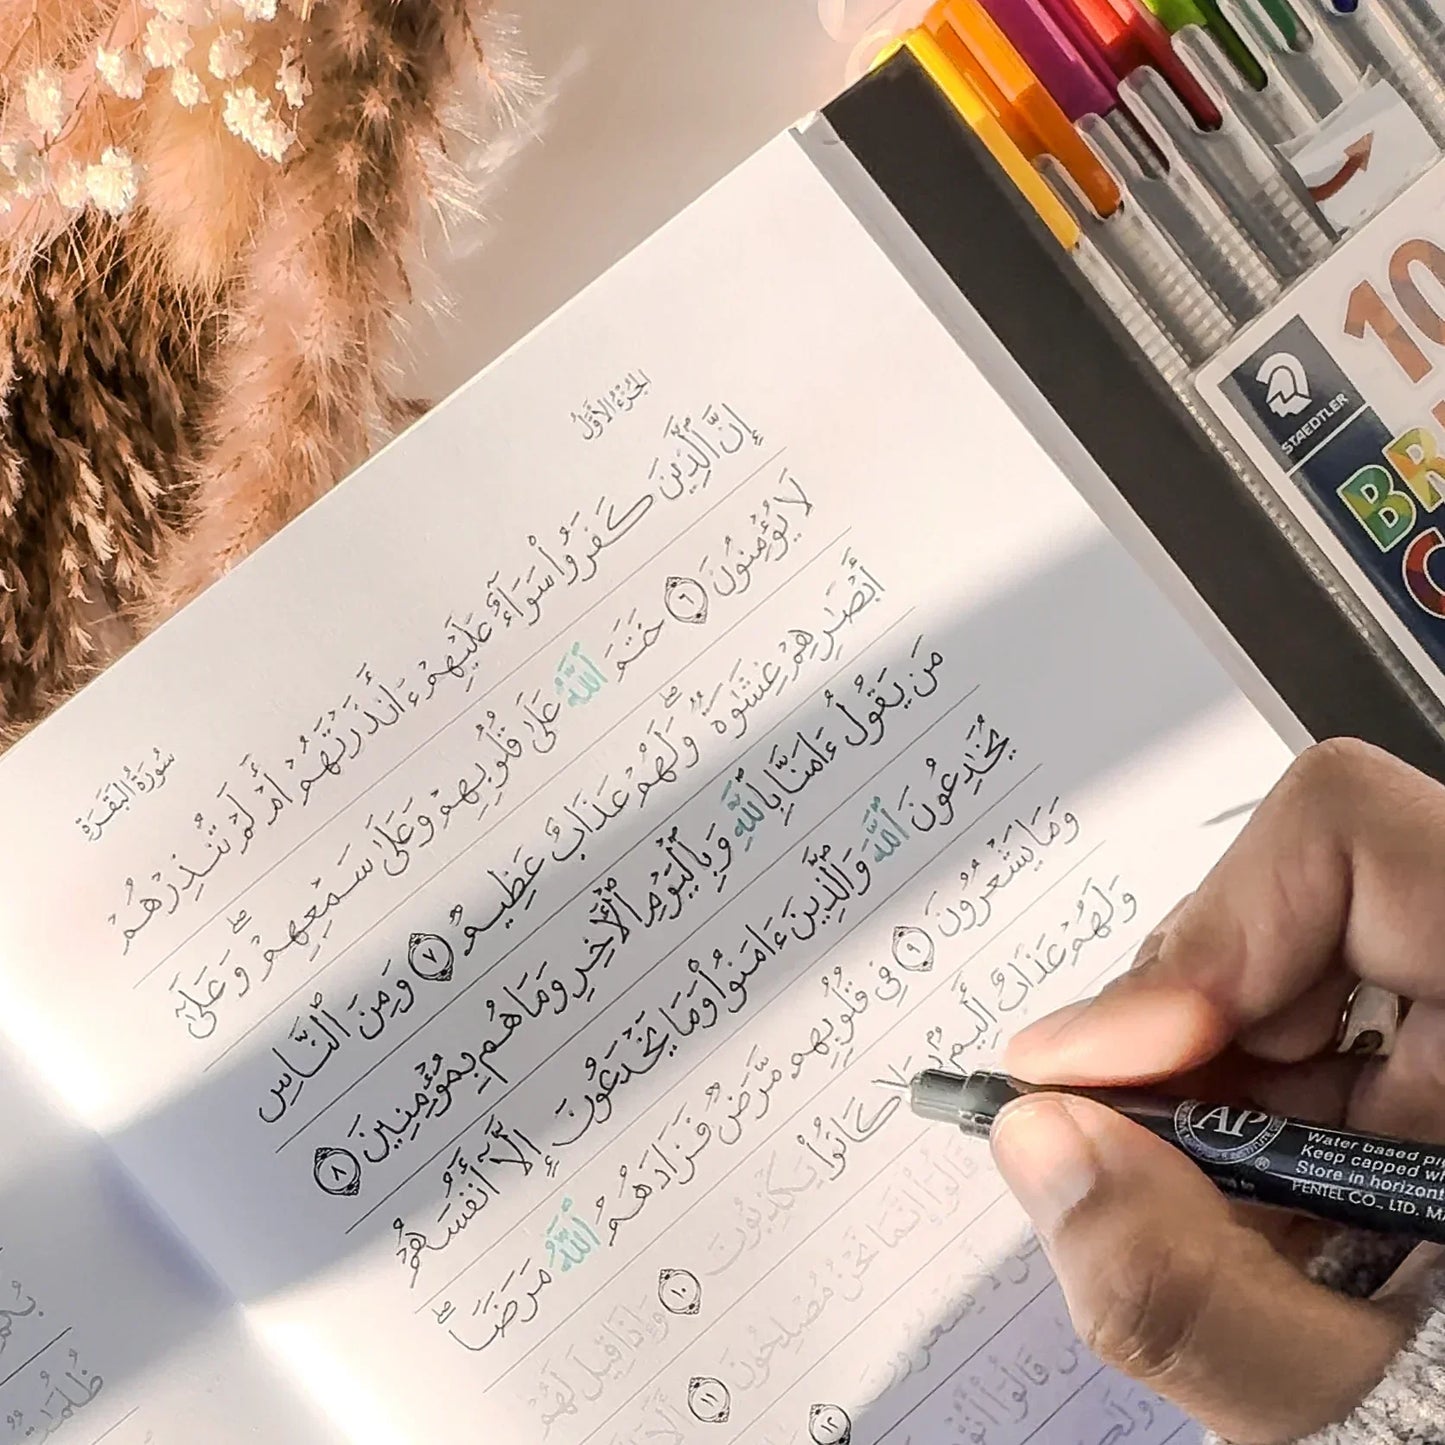 الجُزْءُ الأَوَّلُ
سُورَةُ البَقَرَةِ
إِنَّ ٱلَّذِينَ كَفَرُوا۟ سَوَآءٌ عَلَيْهِمْ ءَأَنذَرْتَهُمْ أَمْ لَمْ تُنذِرْهُمْ
لَا يُؤْمِنُونَ ٦ خَتَمَ ٱللَّهُ عَلَىٰ قُلُوبِهِمْ وَعَلَىٰ سَمْعِهِمْ ۖ وَعَلَىٰٓ
أَبْصَٰرِهِمْ غِشَٰوَةٌ ۖ وَلَهُمْ عَذَابٌ عَظِيمٌ ٧ وَمِنَ ٱلنَّاسِ
مَن يَقُولُ ءَامَنَّا بِٱللَّهِ وَبِٱلْيَوْمِ ٱلْءَاخِرِ وَمَا هُم بِمُؤْمِنِينَ ٨
يُخَٰدِعُونَ ٱللَّهَ وَٱلَّذِينَ ءَامَنُوا۟ وَمَا يَخْدَعُونَ إِلَّآ أَنفُسَهُمْ
وَمَا يَشْعُرُونَ ٩ فِى قُلُوبِهِم مَّرَضٌ فَزَادَهُمُ ٱللَّهُ مَرَضًا ۖ
وَلَهُمْ عَذَابٌ أَلِيمٌۢ كَانُوا۟ يَكْذِبُونَ ١٠ وَإِذَا قِيلَ لَهُمْ
قَالُوٓا۟ إِنَّمَا نَحْنُ مُصْلِحُونَ ١١ أَلَآ
لَّا يَشْعُرُونَ ١٢
قَالُوٓا۟ أَنُؤْمِنُ
ظُلُمَٰتٌ
10
STAEDTLER
BR
AP
Water based pi
Keep capped w
Store in horizont
PENTEL CO., LTD. MA